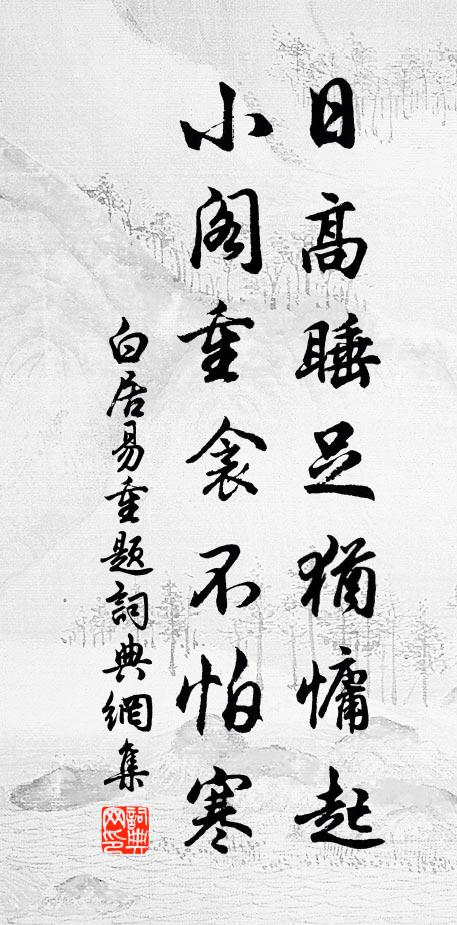 日高睡足猶慵起
小閣重衾不怕寒
白居易重題詞典網集
詞典網印